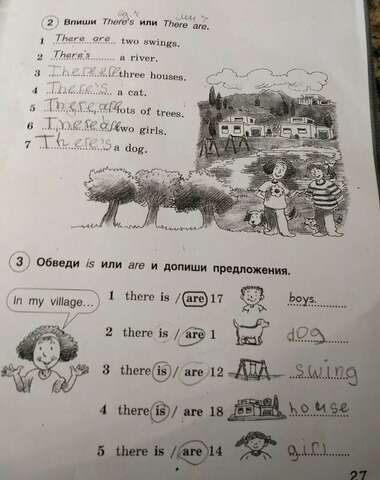 ед.ч мн.ч
2 Впиши There's или There are.
1 There are two swings.
2 There's a river.
3 There are three houses.
4 There's a cat.
5 There are lots of trees.
6 There are two girls.
7 There's a dog.
3 Обведи is или are и допиши предложения.
In my village...
1 there is / are 17 boys.
2 there is / are 1 dog
3 there is / are 12 swing
4 there is / are 18 house
5 there is / are 14 girl
27